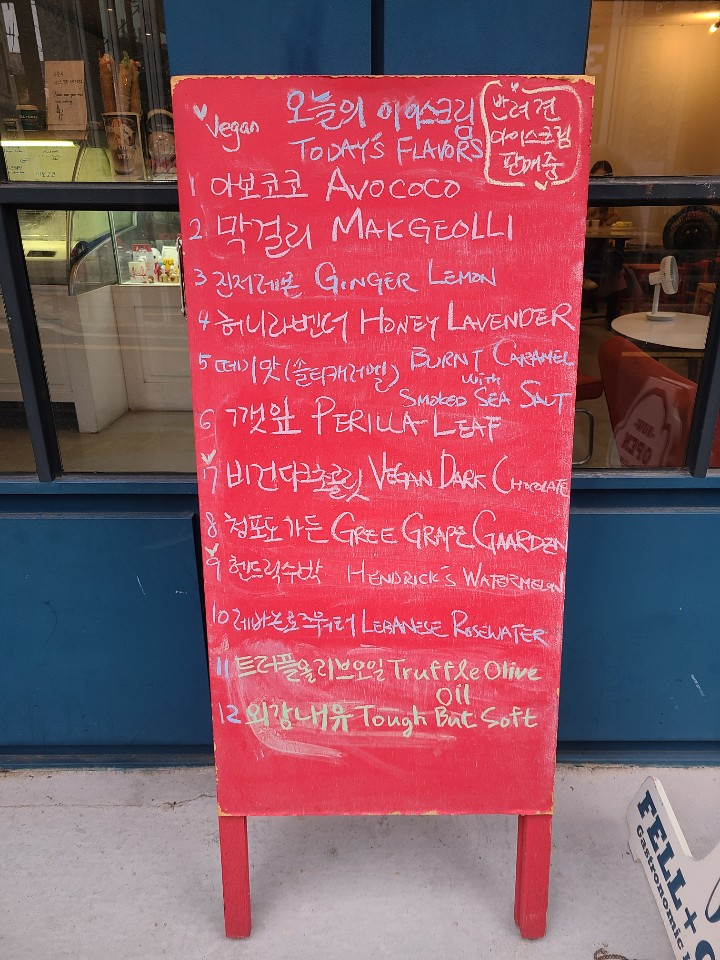 Vegan
오늘의 아이스크림
TODAY'S FLAVORS
반려견
아이스크림
판매중
1 아보코코 AVOCOCO
2 막걸리 MAKGEOLLI
3 진저레몬 GINGER LEMON
4 허니라벤더 HONEY LAVENDER
5 떼이맛(솔티캬러멜) BURNT CARAMEL
with
SMOKED SEA SALT
6 깻잎 PERILLA LEAF
7 비건다크초콜릿 VEGAN DARK CHOCOLATE
8 청포도가든 GREE GRAPE GAARDEN
9 헨드릭수박 HENDRICK'S WATERMELON
10 레바논로즈워터 LEBANESE ROSEWATER
11 트러플올리브오일 Truffle Olive
Oil
12 외강내유 Tough But Soft
OPEN
FELL+
Gastronomic